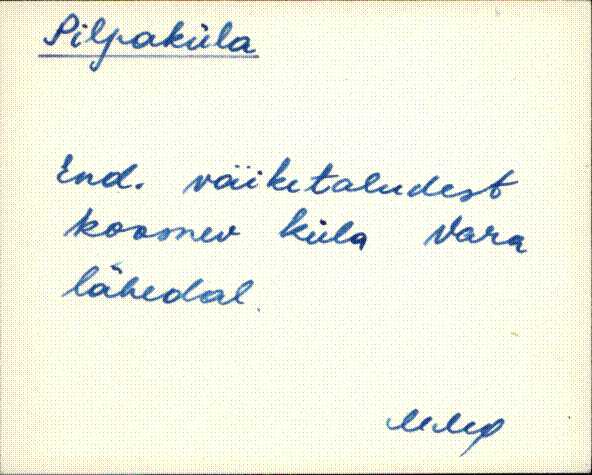 Pilpaküla
End. väiketaludest
koosnev küla Vara
lähedal.